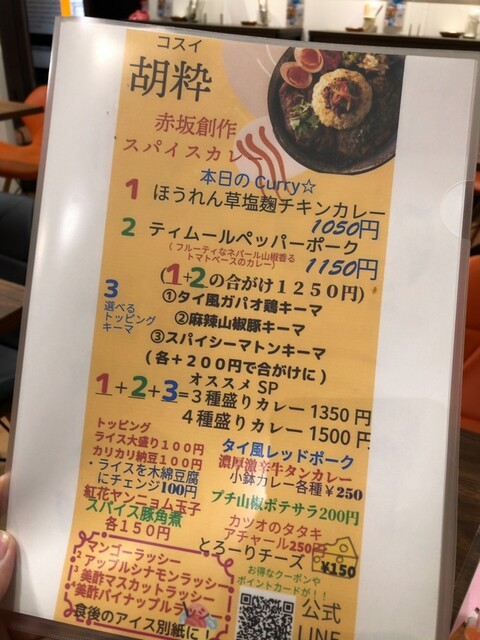 コスイ
胡粋
赤坂創作
スパイスカレー
本日の Curry☆
1 ほうれん草塩麹チキンカレー
1050円
2 ティムールペッパーポーク
(フルーティなネパール山椒香る
トマトベースのカレー)
1150円
(1+2の合がけ1250円)
3
選べる
トッピング
キーマ
①タイ風ガパオ鶏キーマ
②麻辣山椒豚キーマ
③スパイシーマトンキーマ
(各+200円で合がけに)
オススメ SP
1+2+3=3種盛りカレー 1350円
4種盛りカレー 1500円
トッピング
ライス大盛り100円
カリカリ納豆100円
・ライスを木綿豆腐
にチェンジ100円
紅花ヤンニョム玉子
スパイス豚角煮
各150円
タイ風レッドポーク
濃厚激辛牛タンカレー
小鉢カレー各種¥250
プチ山椒ポテサラ200円
カツオのタタキ
アチャール250円
とろーりチーズ
¥150
マンゴーラッシー
アップルシナモンラッシー
美酢マスカットラッシー
美酢パイナップルラッシー
食後のアイス別紙に!
お得なクーポンや
ポイントカードが!!
公式
LINE